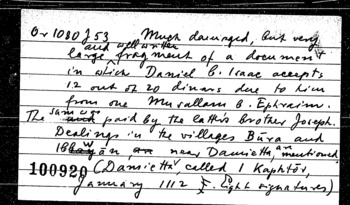 Or 1080 J 53 Much damaged, but very
large and well written fragment of a document
in which Daniel b. Isaac accepts
12 out of 20 dinars due to him
from one Musallam b. Ephraim.
The sum was paid by the latter's brother Joseph.
Dealings in the villages Būra and
near Damietta, are mentioned
100920 (Damietta, called I Kaphtōr,
January 1112 F. light signatures)